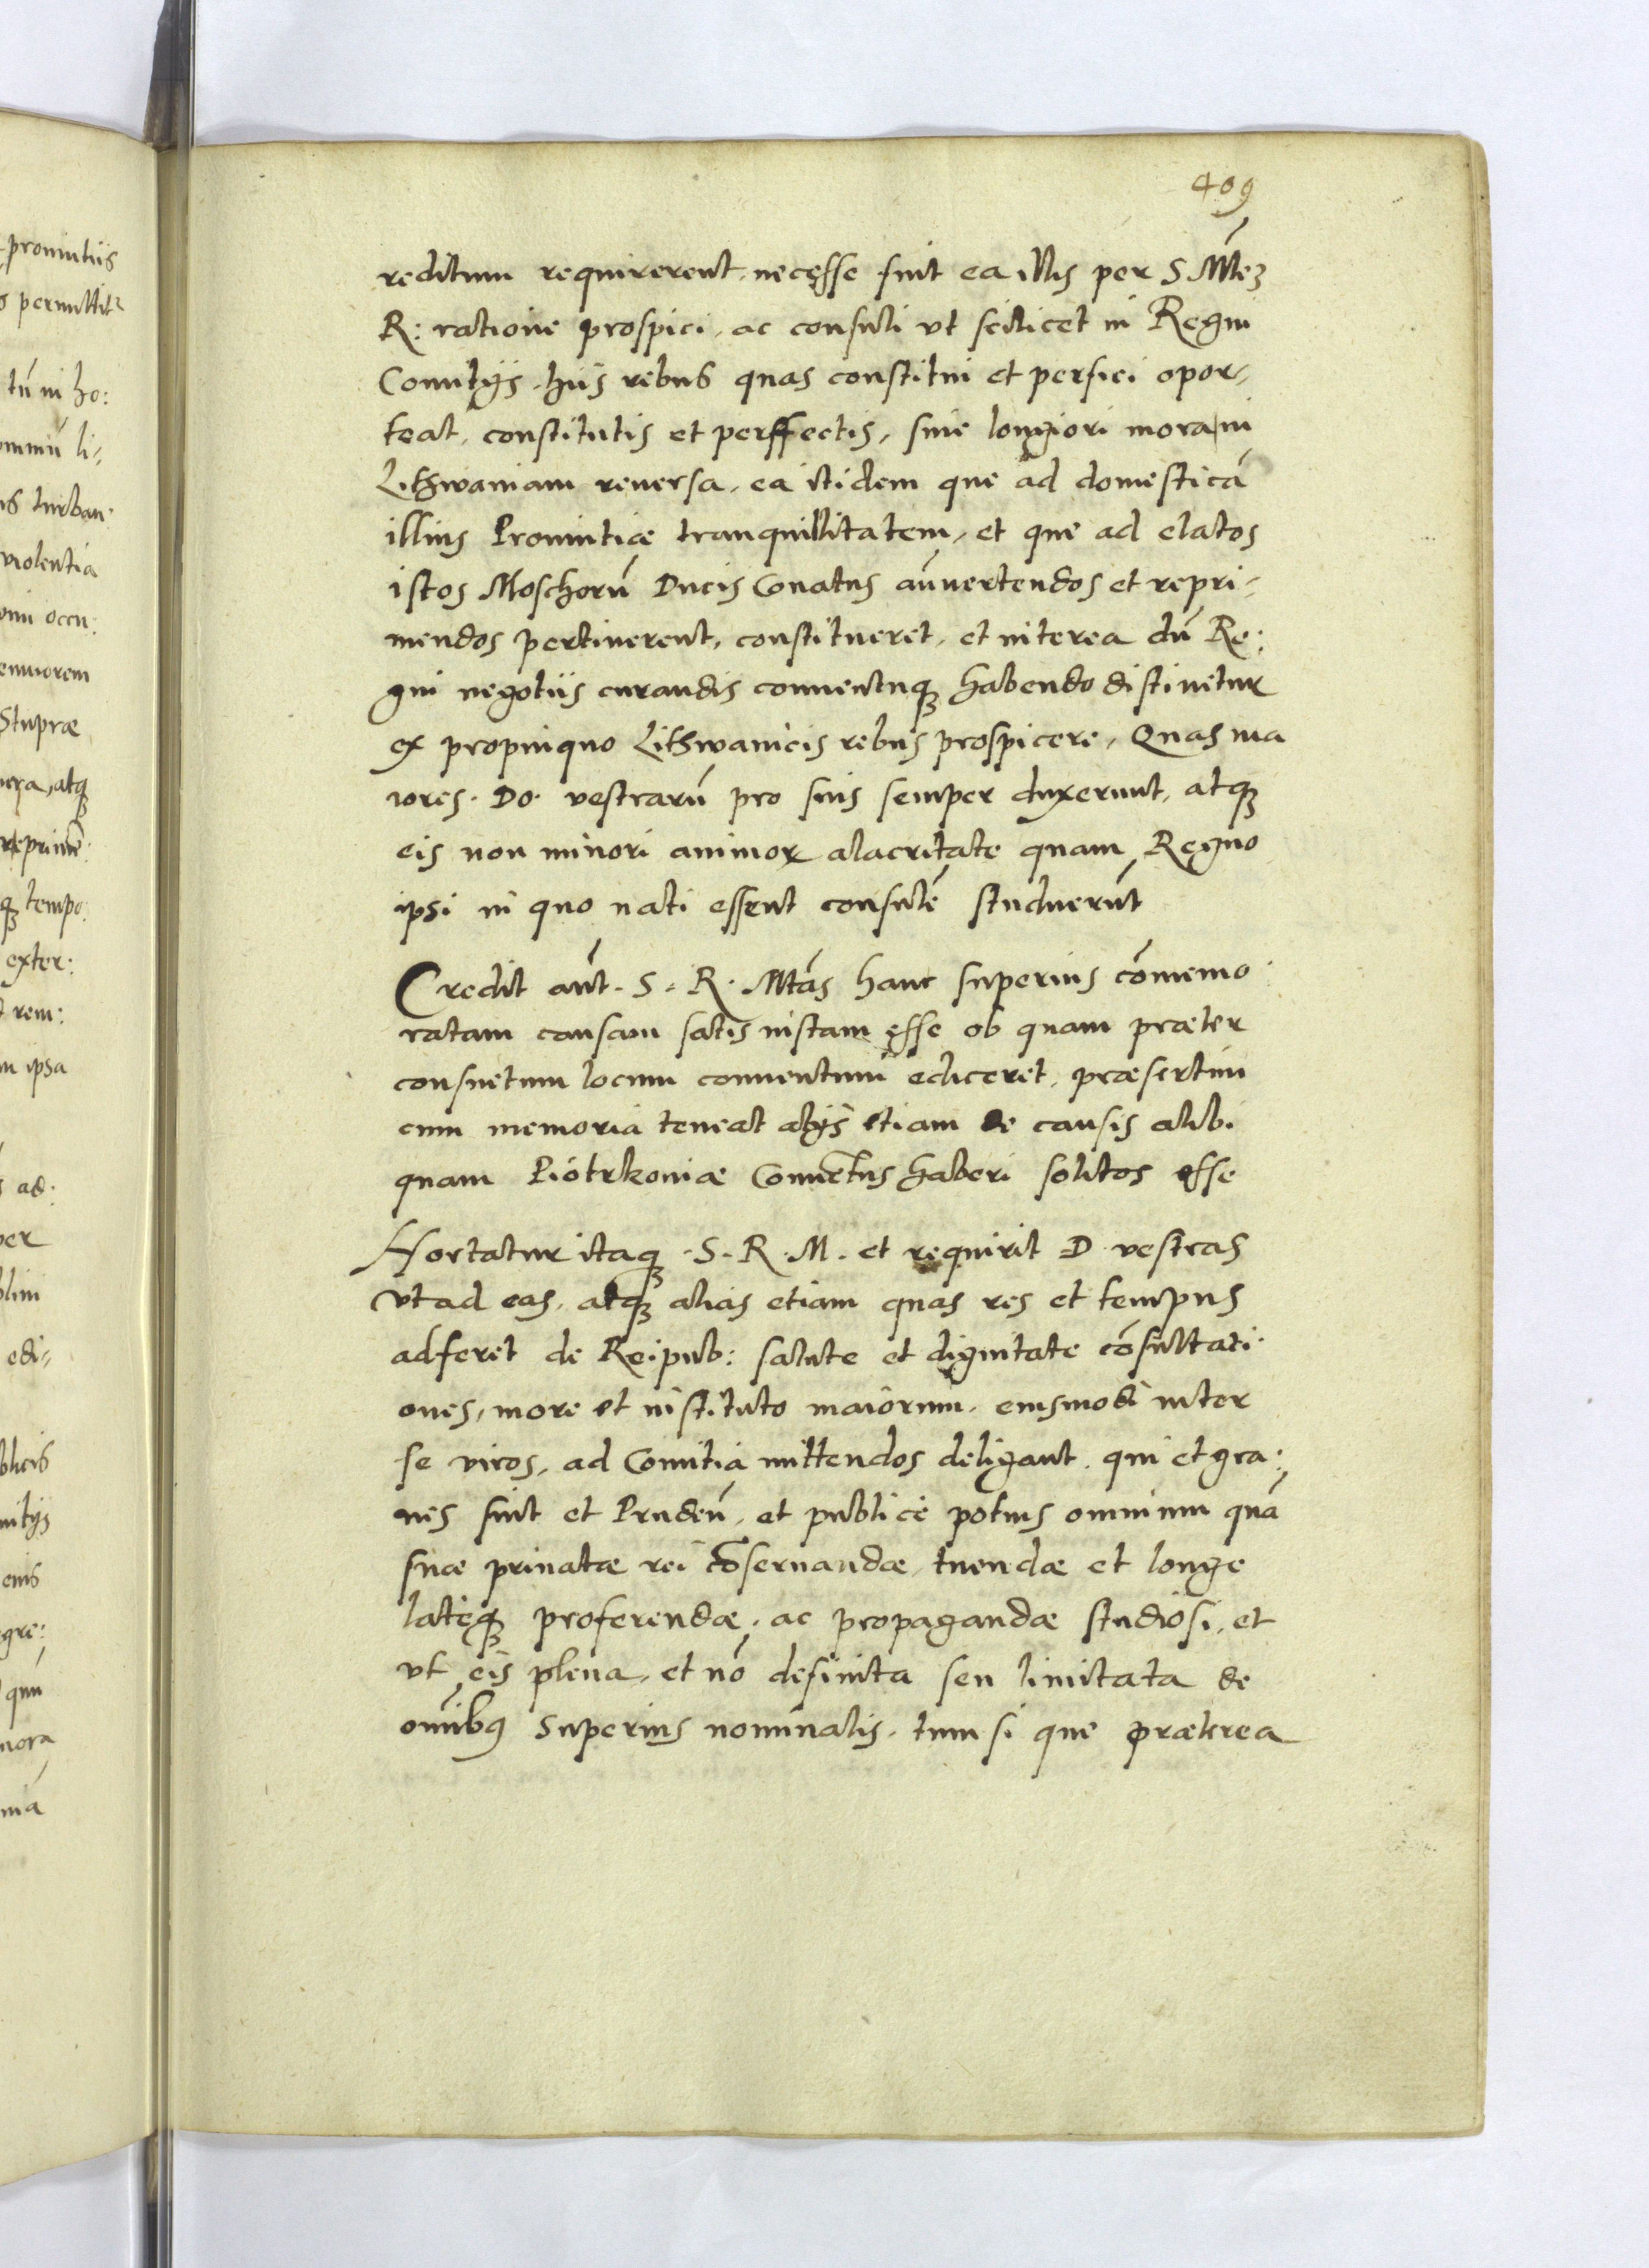 409
reditum requirerent, necesse fuit ea illis per S. Mtez
R: ratione prospici, ac consuli vt scilicet in Regni
Comitijs hiis rebus quas constitui et perfici opor-
teat, constitutis et perffectis, sine longiori mora in
Lithwaniam reuersa, ea itidem que ad domesticã
illius Prouintiæ tranquillitatem, et que ad elatos
istos Moschorũ Ducis Conatus auertendos et repri-
mendos pertinerent, constitueret, et interea dũ Re:
gni negotiis curandis conuentuq3 habendo distinetur
ex propinquo Lithwanicis rebus prospicere, Quas ma
iores Do. vestrarũ pro suis semper duxerunt, atq3
eis non minori animor alacritate quam Regno
ipsi in quo nati essent consulẽ studuerũt
Credit aũt. S. R. Mtãs hanc superius cõmemo
ratam causam satis iustam esse ob quam præter
consuetum locum conuentum ediceret, præsertim
cum memoria teneat alijs etiam de causis alibi
quam Piotrkouiæ Conuẽtus haberi solitos esse
Hortatur itaq3 S. R. M. et requirit D vestras
vt ad eas, atq3 alias etiam quas res et tempus
adferet de Reipub: salute et dignitate cõsultati
ones, more et instituto maiorum, eiusmodi inter
se viros, ad Comitia mittendos deligant, qui et gra:
ues sint et Prudeñ, et publicè potius omnium quã
suæ priuatæ rei cõseruandæ, tuendæ et longe
lateq3 proferendæ, ac propagandæ studiosi, et
vt eis plena, et nõ definita seu limitata de
omĩbus superius nominatis, tum si que præterea